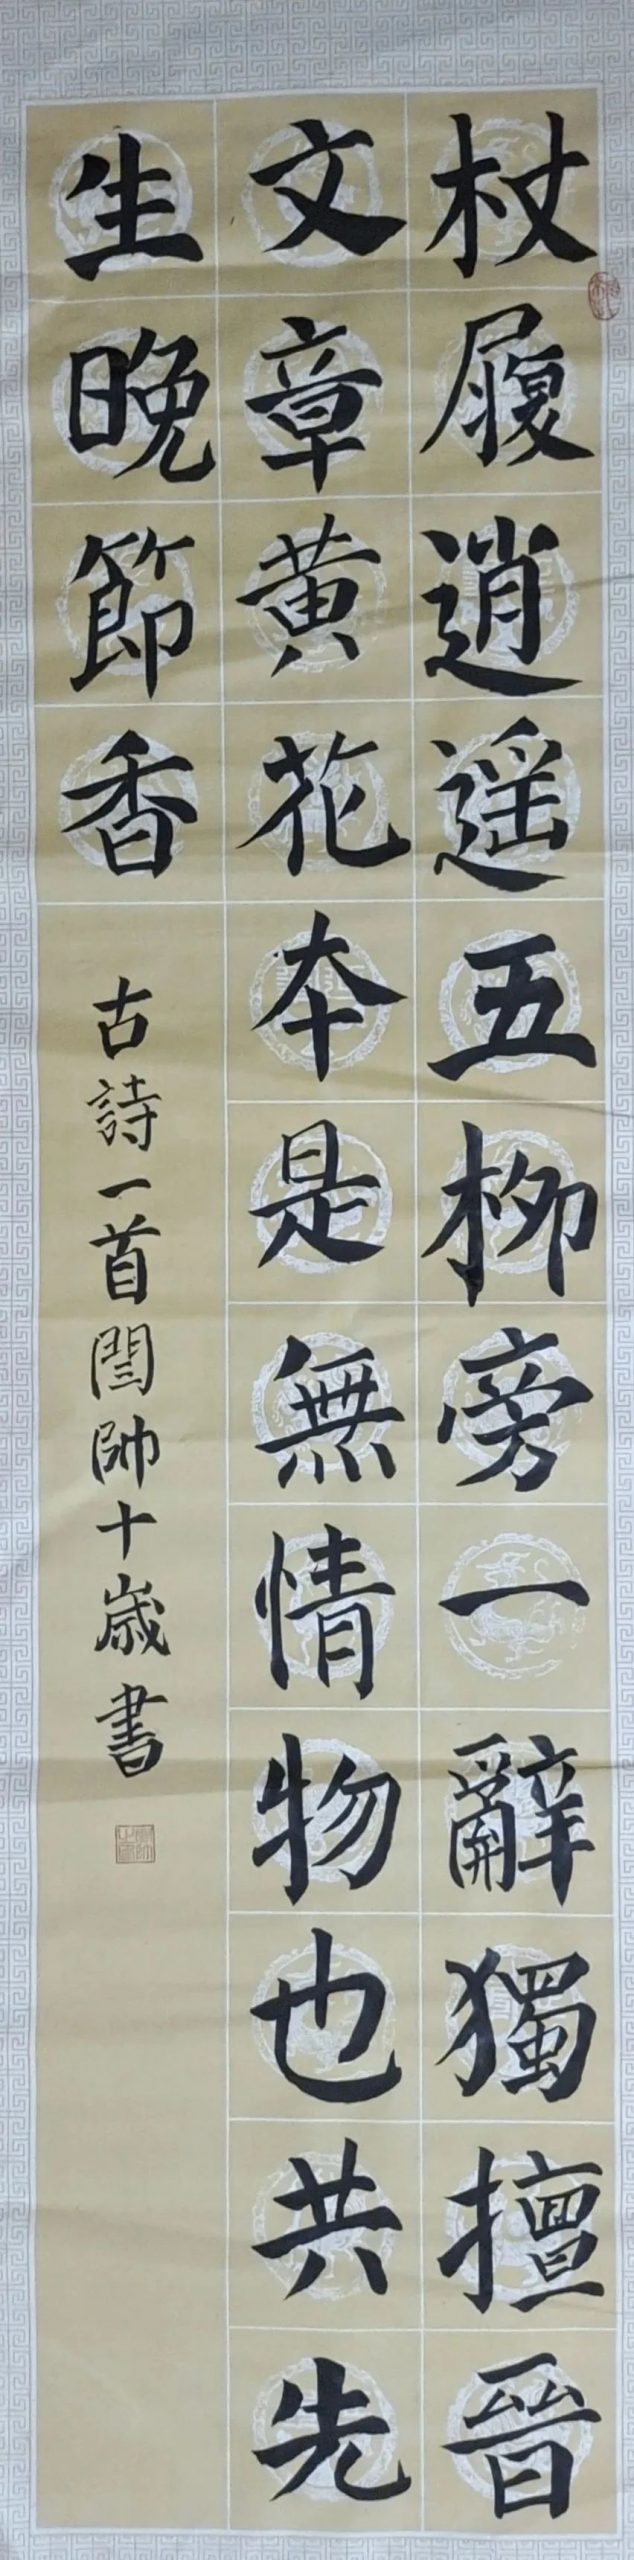 杖履逍遥五柳旁一辭獨擅晉
文章黄花本是無情物也共先
生晚節香
古詩一首閆帥十歲書